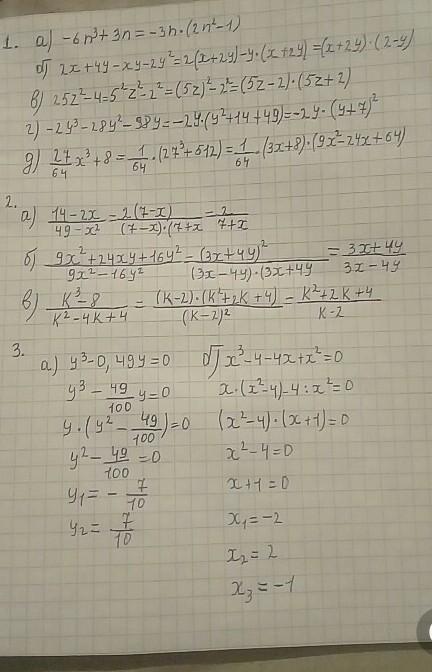 1. а) -6n³+3n=-3n·(2n²-1)
б) 2x+4y-xy-2y²=2(x+2y)-y·(x+2y)=(x+2y)·(2-y)
в) 25z²-4=5²z²-2²=(5z)²-2²=(5z-2)·(5z+2)
г) -2y³-28y²-98y=-2y·(y²+14+49)=-2y·(y+7)²
д) 27/64 x³+8=1/64·(27³+512)=1/64·(3x+8)·(9x²-24x+64)
2.
а) 14-2x/49-x²=2(7-x)/(7-x)·(7+x=2/7+x
б) 9x²+24xy+16y²/9x²-16y²=(3x+4y)²/(3x-4y)·(3x+4y=3x+4y/3x-4y
в) k³-8/k²-4k+4=(k-2)·(k²+2k+4)/(k-2)²=k²+2k+4/k-2
3.
а) y³-0,49y=0
y³-49/100 y=0
y·(y²-49/100)=0
y²-49/100=0
y₁=-7/10
y₂=7/10
б) x³-4-4x+x²=0
x·(x²-4)-4:x²=0
(x²-4)·(x+1)=0
x²-4=0
x+1=0
x₁=-2
x₂=2
x₃=-1